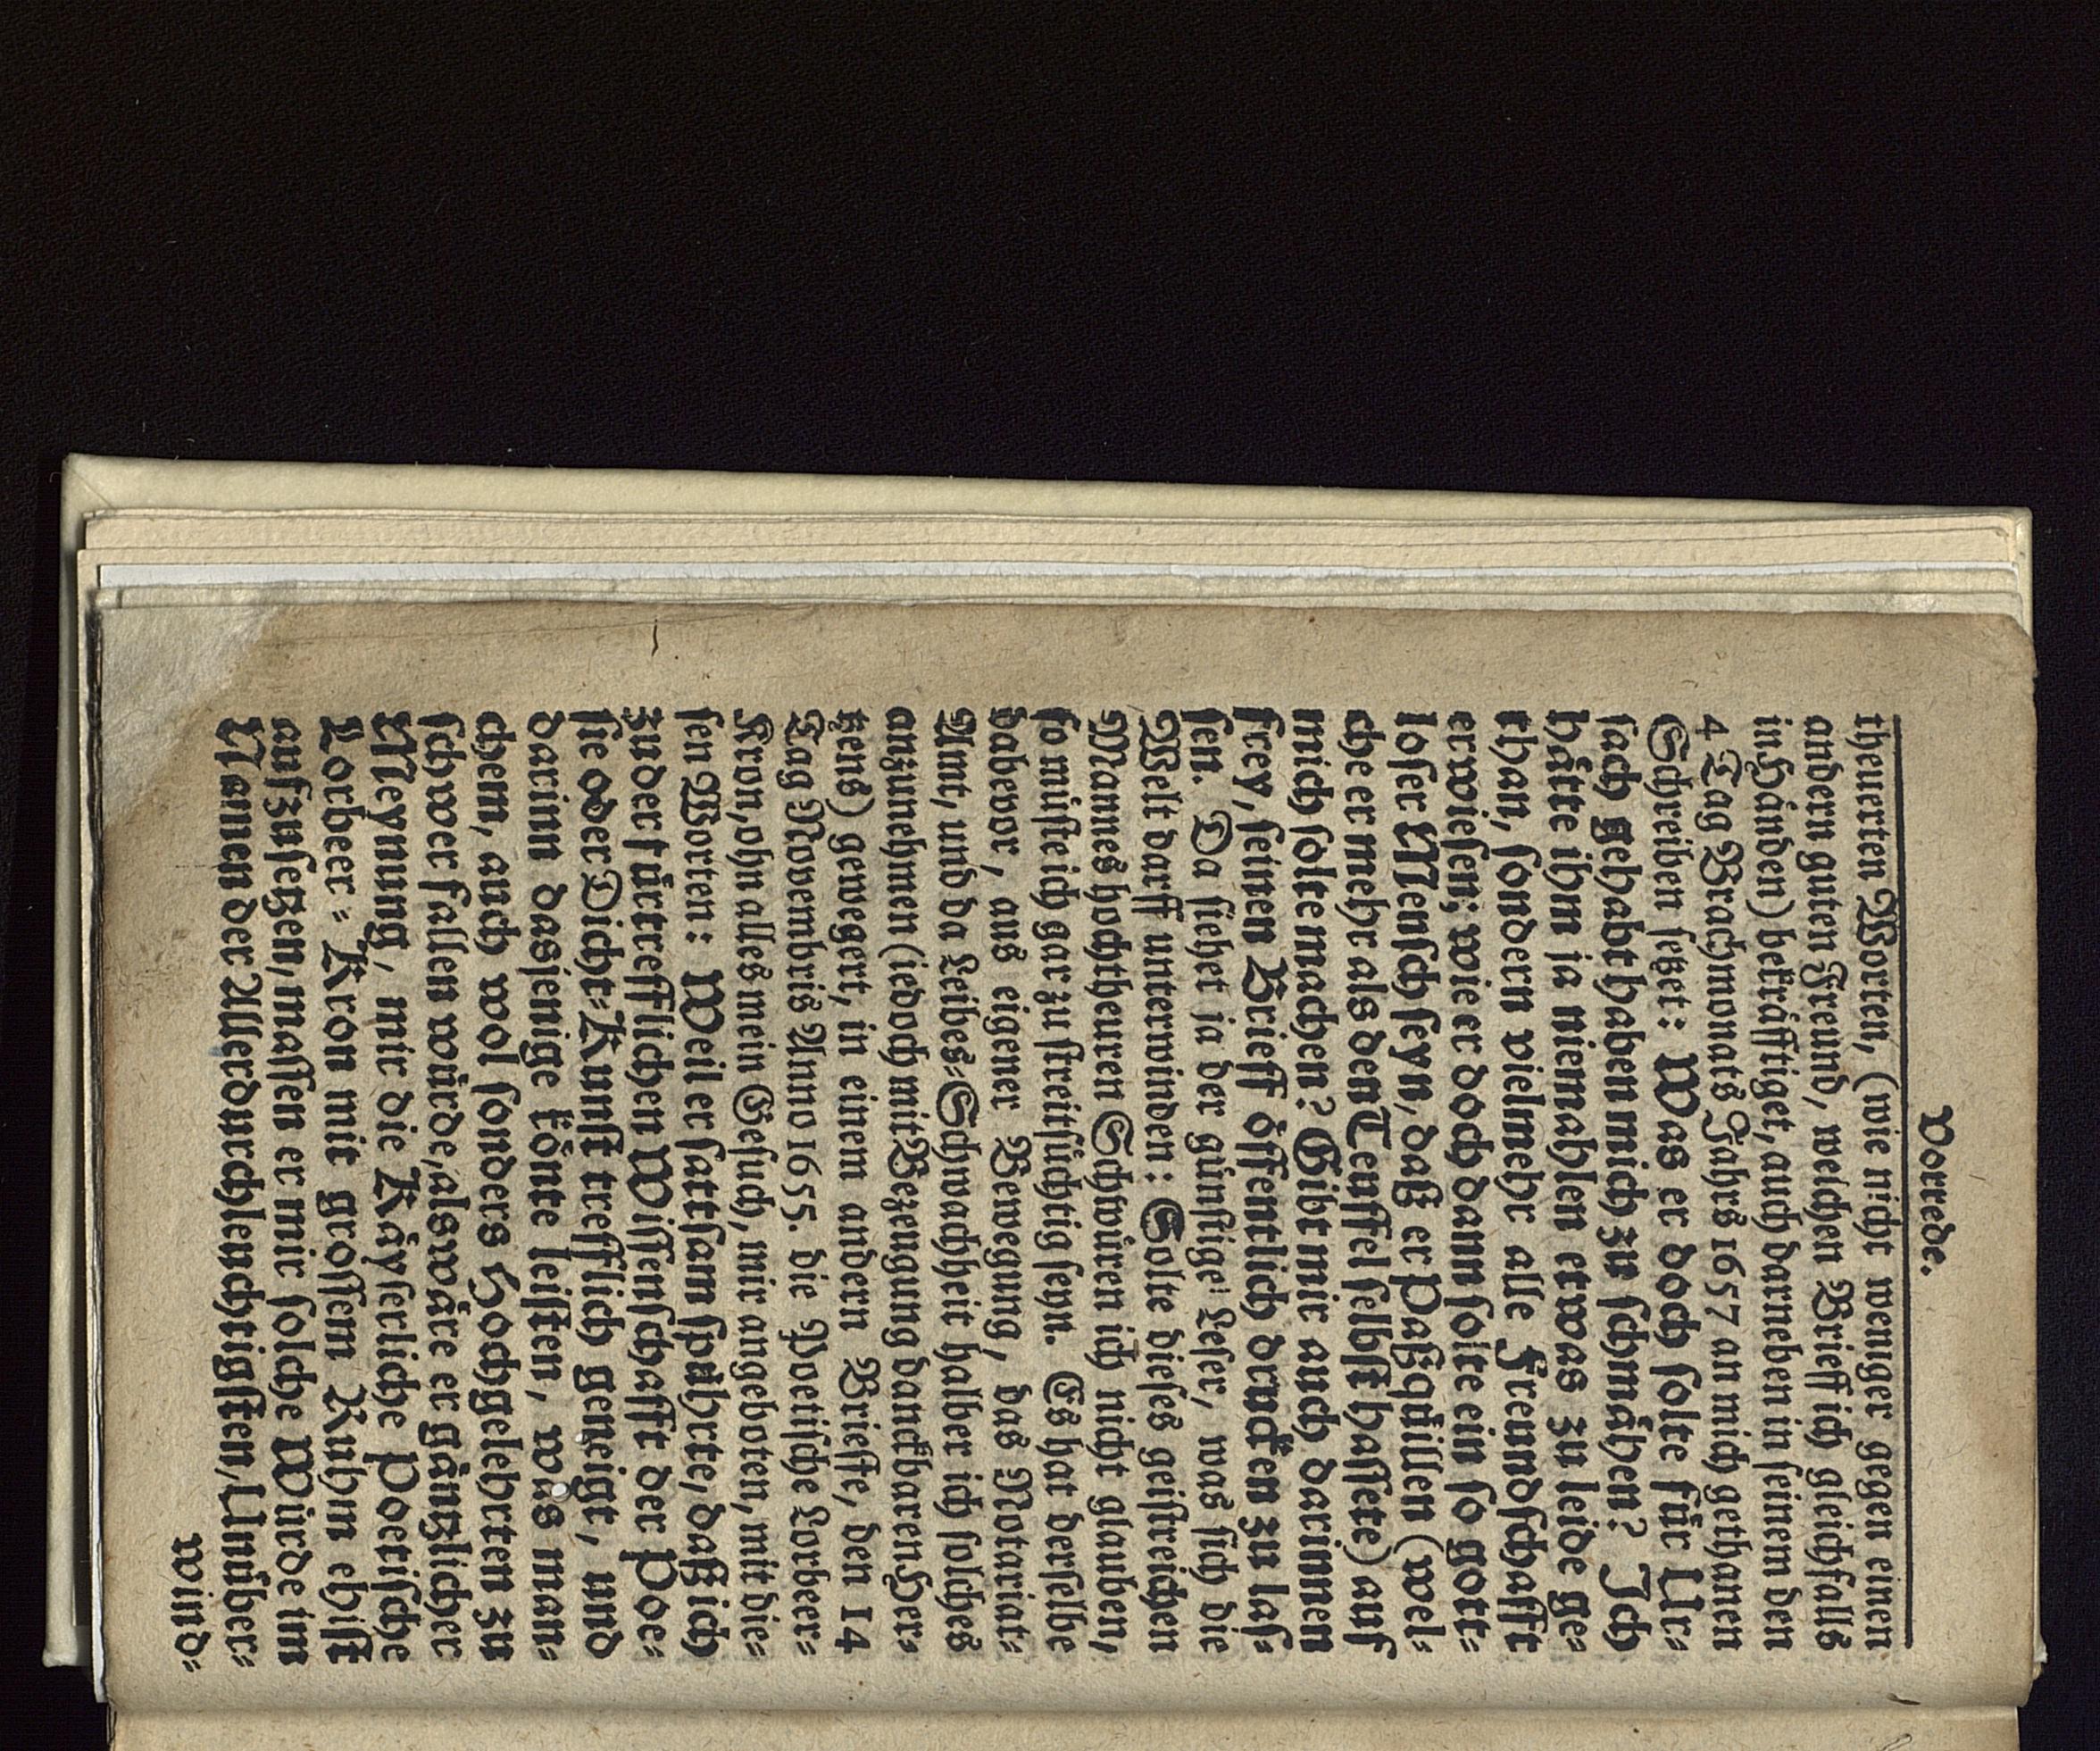 Vorrede.
theuerten Worten, (wie nicht weniger gegen einen
andern guten Freund, welchen Brieff ich gleichfalls
in Händen) bekräfftiget, auch darneben in seinem den
4 Tag Brachmonats Jahrs 1657 an mich gethanen
Schreiben setzet: Was er doch solte für Ur⸗
sach gehabt haben mich zu schmähen? Ich
hätte ihm ja niemahlen etwas zu leide ge⸗
than, sondern vielmehr alle Freundschafft
erwiesen; wie er doch dann solte ein so gott⸗
loser Mensch seyn, daß er Paßqüillen (wel⸗
che er mehr als den Teuffel selbst hassete) auf
mich solte machen? Gibt mir auch darinnen
frey, seinen Brieff öffentlich drucken zu las⸗
sen. Da siehet ja der günstige Leser, was sich die
Welt darff unterwinden: Solte dieses geistreichen
Mannes hochtheuren Schwüren ich nicht glauben,
so müste ich gar zu streitsüchtig seyn. Es hat derselbe
dabevor, aus eigener Bewegung, das Notariat⸗
Amt, und da Leibes⸗Schwachheit halber ich solches
anzunehmen (iedoch mit Bezeugung danckbaren Her⸗
tzens) gewegert, in einem andern Brieffe, den 14
Tag Novembris Anno 1655. die Poetische Lorbeer⸗
Kron, ohn alles mein Gesuch, mir angeboten, mit die⸗
sen Worten: Weil er sattsam spührte, daß ich
zu der fürtrefflichen Wissenschafft der Poe⸗
sie oder Dicht⸗Kunst trefflich geneigt, und
darinn dasjenige könte leisten, was man⸗
chem, auch wol sonders Hochgelehrten zu
schwer fallen würde, als wäre er gäntzlicher
Meynung, mir die Käyserliche Poetische
Lorbeer⸗Kron mit grossem Ruhm ehist
aufzusetzen, massen er mir solche Würde im
Namen der Allerdurchleuchtigsten, Unüber⸗
wind⸗